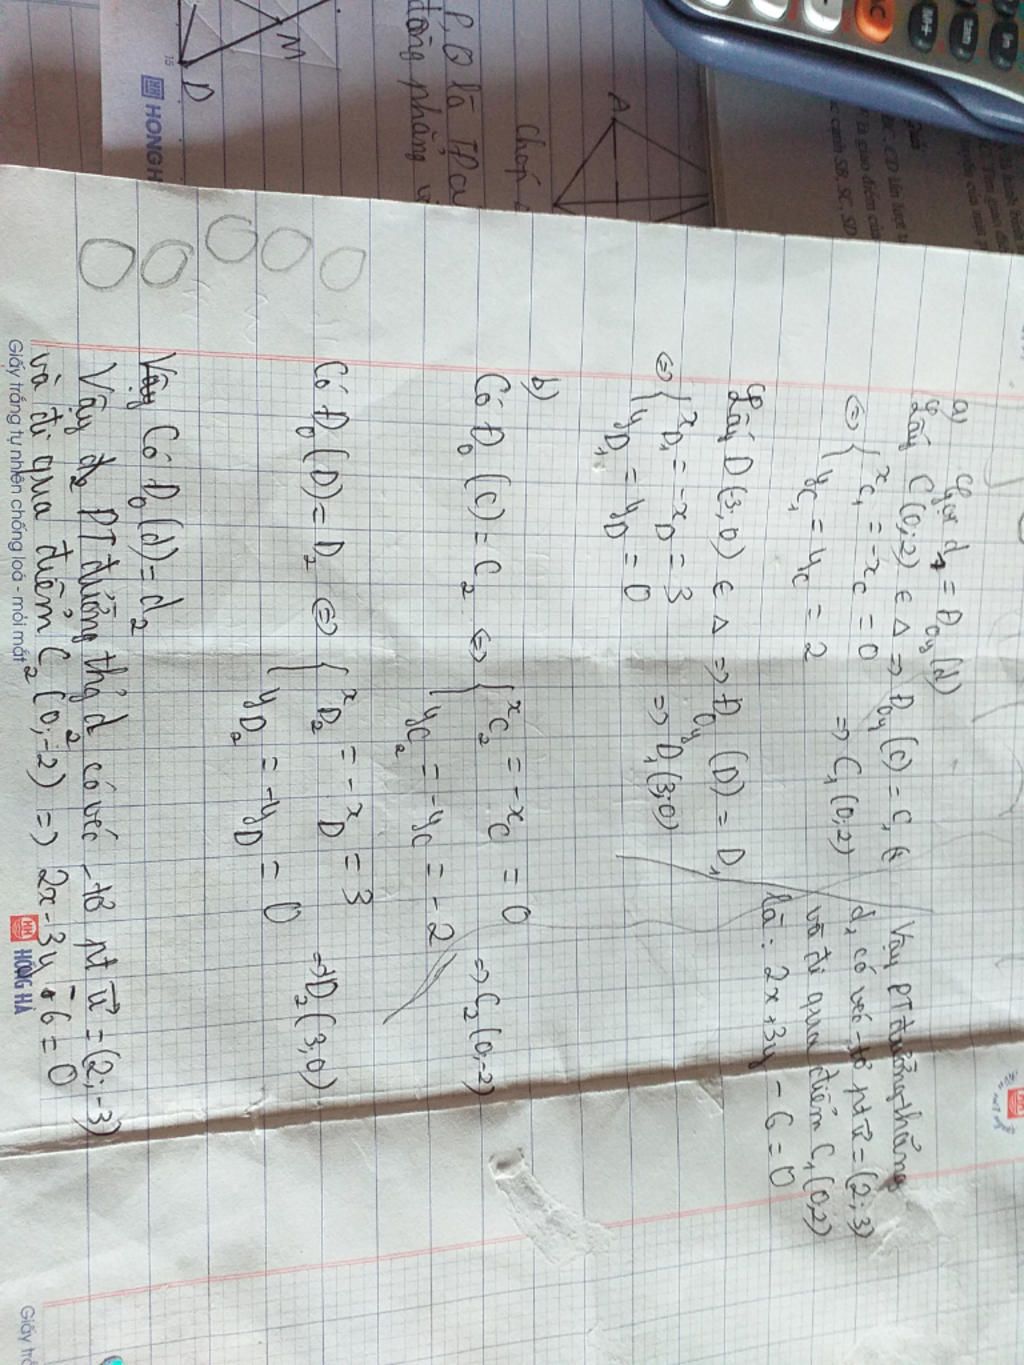 a) Gọi d₁ = Đoy(d)
Lấy C(0;2) ∈ Δ ⇒ Đoy(C) = C₁
⇔ { x_C₁ = -x_C = 0
y_C₁ = y_C = 2 ⇒ C₁(0;2)
Lấy D(3,0) ∈ Δ ⇒ Đoy (D) = D₁
⇔ { x_D₁ = -x_D = 3
y_D₁ = y_D = 0 ⇒ D₁(3;0)
Vậy PT đường thẳng
d₁ có véc-tơ pt u⃗ = (2;3)
và đi qua điểm C₁(0,2)
là: 2x+3y - 6 = 0
b)
Có Đo (C) = C₂ ⇔ { x_C₂ = -x_C = 0
y_C₂ = -y_C = -2 ⇒ C₂(0;-2)
Có Đo (D) = D₂ ⇔ { x_D₂ = -x_D = 3
y_D₂ = -y_D = 0 ⇒ D₂(3,0)
Vậy Có Đo (d) = d₂
Vậy d₂ PT đường thg d₂ có véc-tơ pt u⃗ = (2;-3)
và đi qua điểm C₂(0;-2) ⇒ 2x-3y-6=0
Giấy trắng tự nhiên chống loá - mỏi mắt
HỒNG HÀ
P,Q là
đồng phẳng
Chóp
A
M
D
HONGH
M+